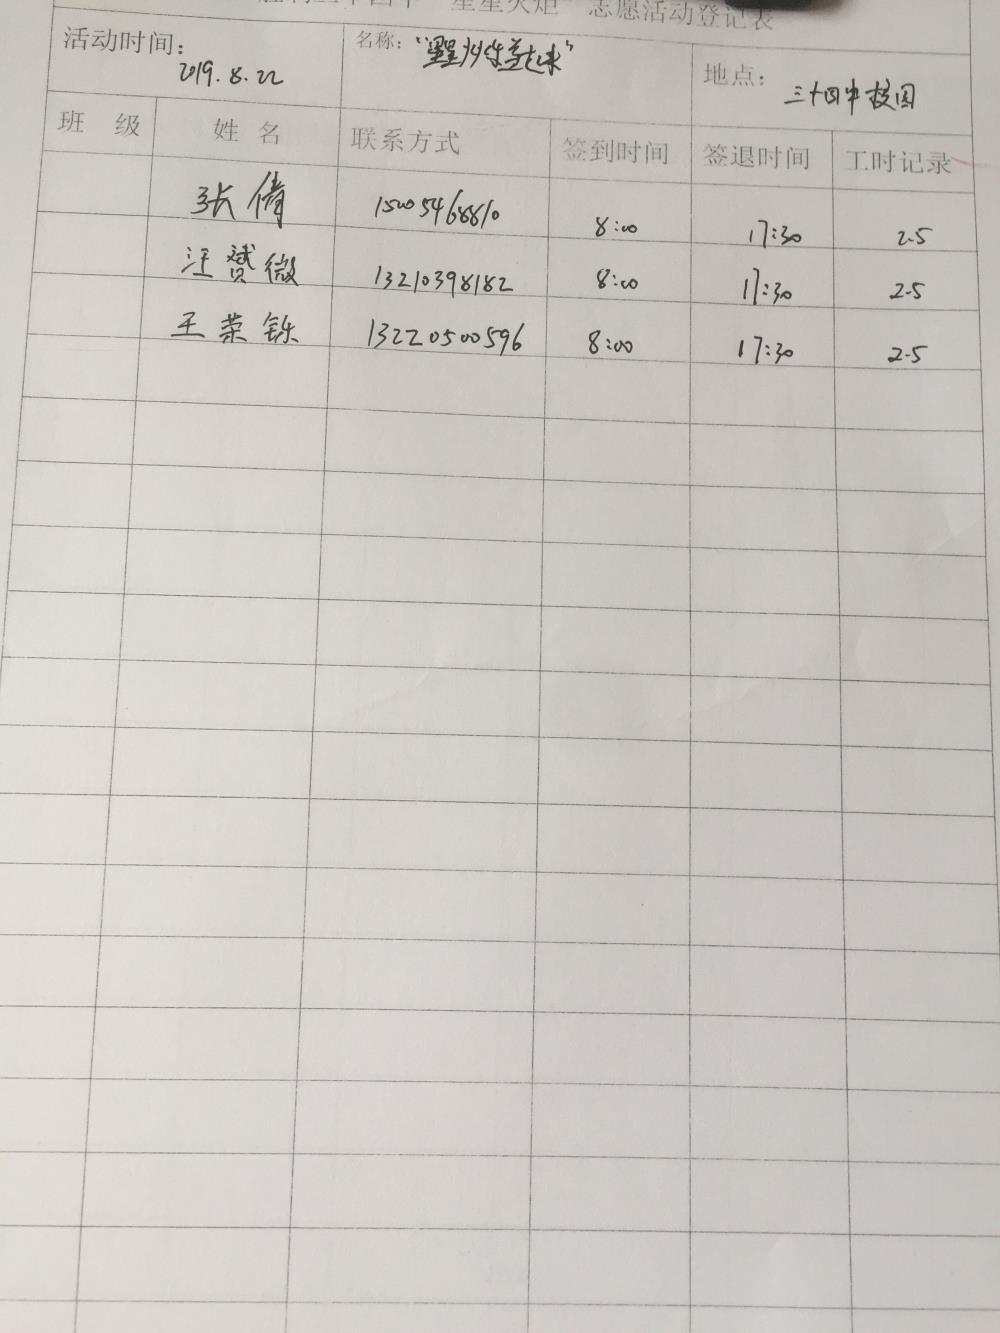 胜利三十四中“星星火炬”志愿活动登记表
活动时间： 2019.8.22 名称： 地点： 三十四中校园
班 级 姓 名 联系方式 签到时间 签退时间 工时记录
张倩 15005468810 8:00 17:30 2.5
汪赟微 13210398182 8:00 17:30 2.5
王荣铄 13220500596 8:00 17:30 2.5